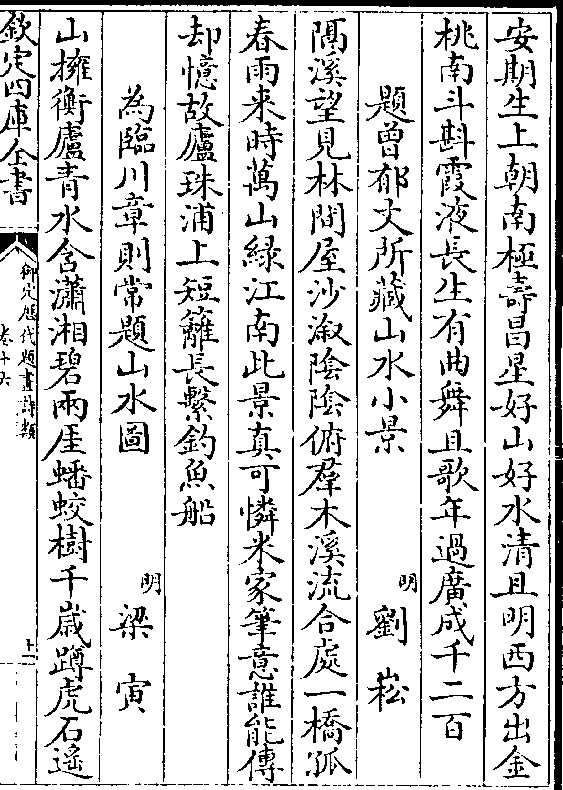 安期生上朝南極壽昌星好山好水清且明西方出金
桃南斗斟霞液長生有曲舞且歌年過廣成千二百
題曾郁文所藏山水小景
明 劉崧
隔溪望見林間屋沙溆陰陰俯羣木溪流合處一橋孤
春雨来時萬山緑江南此景真可憐米家筆意誰能傳
却憶故廬珠浦上短籬長繫釣魚船
為臨川章則常題山水圖
明 梁寅
山擁衡廬青水含瀟湘碧兩厓蟠蛟樹千嵗蹲虎石遥
欽定四庫全書
御定歴代題畫詩類
卷十六
十一